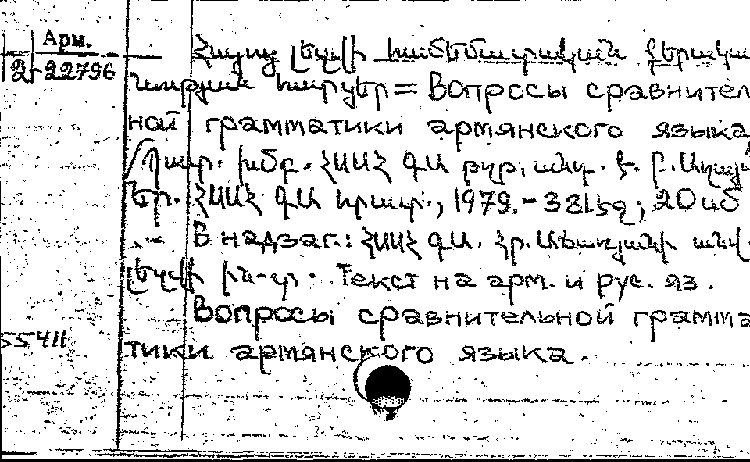 Арм.
2-22796
Հայոց լեզվի համեմատական քերակա-
նության հարցեր = Вопросы сравнител
ной грамматики армянского языка
խմբ. ՀՍՍՀ ԳԱ
ՀՍՍՀ ԳԱ հրատ., 1979.- 331 էջ; 20 սմ
В надзаг.: ՀՍՍՀ ԳԱ. Հր. Աճառյանի անվ.
լեզվի ին-տ. Текст на арм. и рус. яз.
Вопросы сравнительной грамма
55411
тики армянского языка.